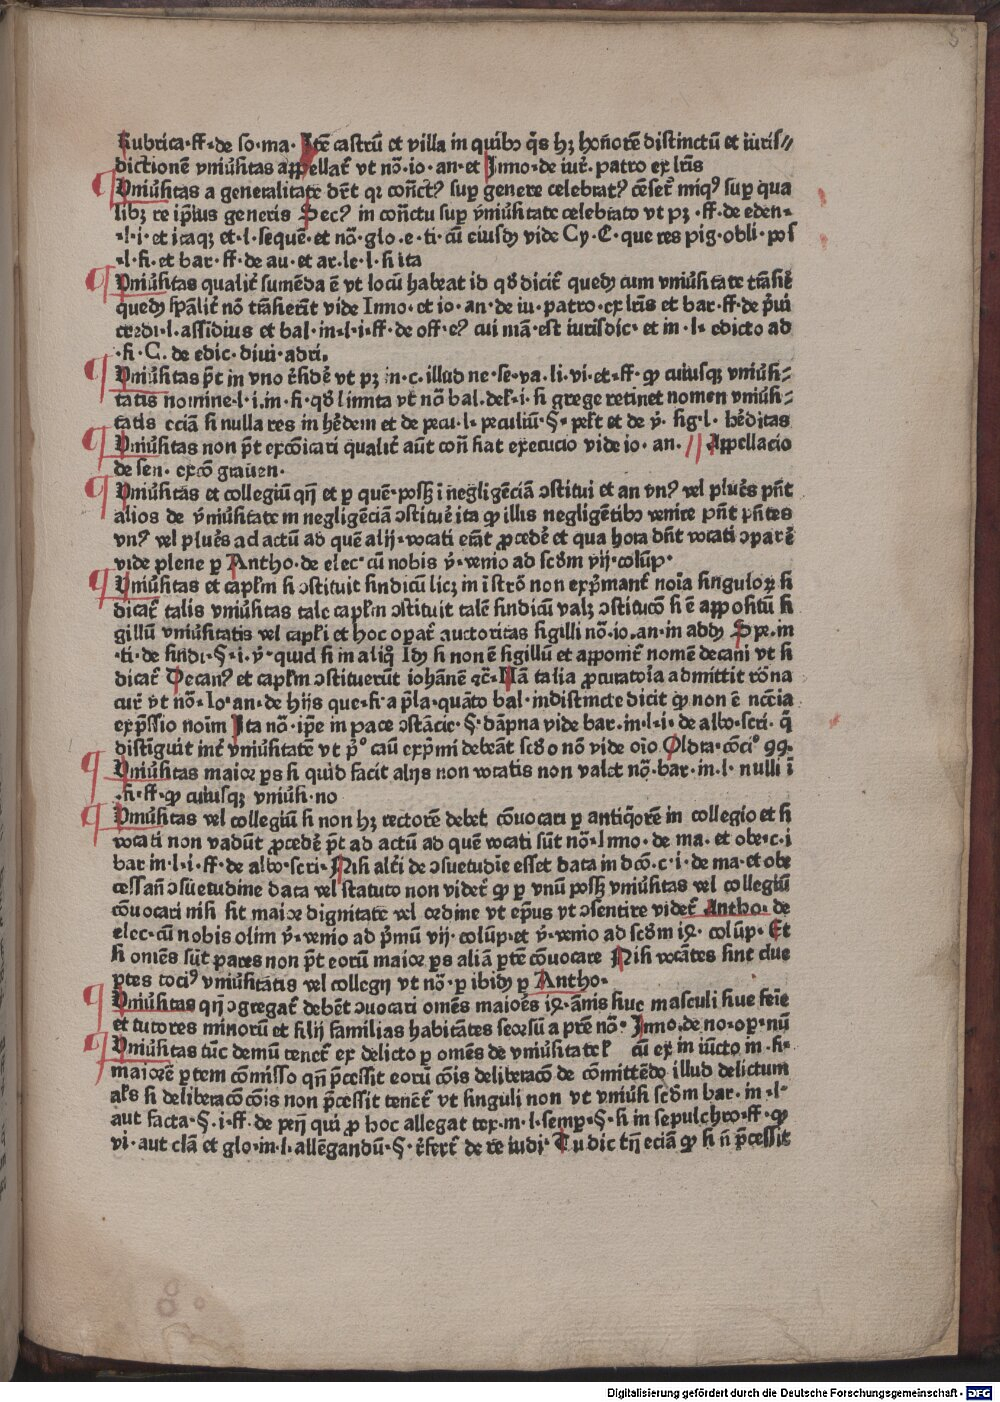 Rubrica·ff·de so·ma· Itē castrū et villa in quibꝫ q̄s hꝫ honorē districtū et iuris⸗
dictionē vniūsitas appellat̄ vt nō·io·an·et Inno·de iur̄·patro ex lr̄is
Vniūsitas a generalitate dr̄t
sup genere celebrat? sup qua
libꝫ re ip̄ius generis Sec? in con̄ctu sup vniūsitate celebrato vt pꝫ ·ff·de eden⸗
·l·i·et itaqꝫ et·l·sequē·et nō·glo·e·ti·cū eiusdꝫ vide Cy·C·que res pig·obli·pos
·l·fi·et bar·ff·de au·et ar·le·l·si ita
Vniūsitas qualit̄ sumēda ē vt locū habeat id qd̄ dicit̄ quedꝫ cum vniūsitate trāsir̄
quedꝫ spālit̄ nō trāsierūt vide Inno·et io·an·de iu·patro·ex lr̄is et bar·ff·de p̄ui
credi·l·assidius et bal·in·l·i·ff·de off·e? cui mā·est iurisdic·et in·l·edicto ad
·fi·C·de edic·diui·adri·
Vniūsitas pt̄ in vno r̄sidē vt pꝫ in·c·illud ne·se·va·li·vi·et·ff·qꝫ cuiusqꝫ vniūsi⸗
tatis nomine·l·i·in·fi·qd̄ limita vt nō bal·dek̄·i·si grege retinet nomen vniūsi⸗
tatis eciā si nulla res in hēdem et de pecu·l·peculiū·§·pek̄t et de v̄·sig·l·hēditas
Vniūsitas non pt̄ excōicari qualit̄ aūt con̄ fiat execucio vide io·an· // Appellacio
de sen·excō grauen·
Vniūsitas et collegiū qn̄ et p quē·possꝫ ī negligēciā ↄstitui et an vn? vel plur̄es pn̄t
alios de v̄niūsitate in negligēciā ↄstituē ita qꝫ illis negligētibꝫ venire pn̄t pn̄tes
vn? vel plur̄es ad actū ad quē alij·vocati er̄āt procedē et qua hora dn̄t vocati ↄparē
vide plene p Antho·de elec·cū nobis v̄·venio ad scd̄m vij·colūp·
Vniūsitas et capl̄m si ↄstituit sindicū licꝫ in īstrō non exp̄mant̄ noīa singuloꝝ si
dicat̄ talis vniūsitas tale capl̄m ↄstituit talē sindicū valꝫ ↄstitucō si ē appositū si
gillū vniūsitatis vel capl̄i et hoc opat̄ auctoritas sigilli nō·io·an·in addꝫ Spe·in
·ti·de sindi·§·i·v̄·quid si in aliq̄ Idꝫ si non ē sigillū et apponit̄ nomē decani vt si
dicat̄ Decan? et capl̄m ↄstituerūt iohānē ⁊c̄·Nā talia procuratoīa admittit rōna
cur̄ vt nō·Io·an·de hijs que·fi·a p̄la·quāto bal·indistincte dicit qꝫ non ē nccīa
exp̄ssio noīm Ita nō·ip̄e in pace ↄstācie·§·dāpna vide bar·in·l·i·de albo·scri·q̄
distīguit int̄ vniūsitatē vt p̄? caū exp̄mi debeāt scd̄o nō vide oīo Oldra·cōci? 99·
Vniūsitas maior ps si quid facit alijs non vocatis non valet nō·bar·in·l·nulli ī
·fi·ff·qꝫ cuiusqꝫ vniūsi·no
Vniūsitas vel collegiū si non hꝫ rectorē debet cōuocari p antiq̄orē in collegio et si
vocati non vadūt procedē pt̄ ad actū ad quē vocati sūt nō·Inno·de ma·et obe·c·i
bar·in·l·i·ff·de albo·scri·Nisi alit̄ de ↄsuetudīe esset data in dcō·c·i·de ma·et obe
cessan̄ ↄsuetudine data vel statuto non videt̄ qꝫ p vnū possꝫ vniūsitas vel collegiū
cōuocari nisi sit maior dignitate vel ordine vt ep̄us vt ↄsentire videt̄ Antho·de
elec·cū nobis olim v̄·venio ad p̄mū vij·colūp·et v̄·venio ad scd̄m iꝝ·colūp·Et
si omēs sūt pares non pt̄ eorū maior ps aliā ptē cōuocare Nisi vocātes sint due
ptes toci? vniūsitātis vel collegij vt nō·p ibidꝫ p Antho·
Vniūsitas qn̄ ↄgregat̄ debēt ↄuocari omēs maior̄es iꝝ·ānis siue masculi siue fēīe
et tutores minorū et filij familias habitātes seorsū a ptrē nō· Inno·de no·op·nū
Vniūsitas tūc demū tenet̄ ex delicto p omēs de vniūsitate k̄ cū ex in iūcto in·fi·
maiorē ptem cōmisso qn̄ p̄cessit eorū cōis deliberacō de cōmittēdo illud delictum
al̄s si deliberacō cōis non p̄cessit tenēt̄ vt singuli non vt vniūsi scd̄m bar·in·l·
aut facta·§·i·ff·de pen̄ qui pro hoc allegat tex·in·l·semp·§·si in sepulchro·ff·qꝫ
vi·aut clā et glo·in·l·allēgandū·§·r̄fert̄ de re iudi· Tu dic tn̄ eciā qꝫ si n̄ p̄cessit
Digitalisierung gefördert durch die Deutsche Forschungsgemeinschaft · DFG